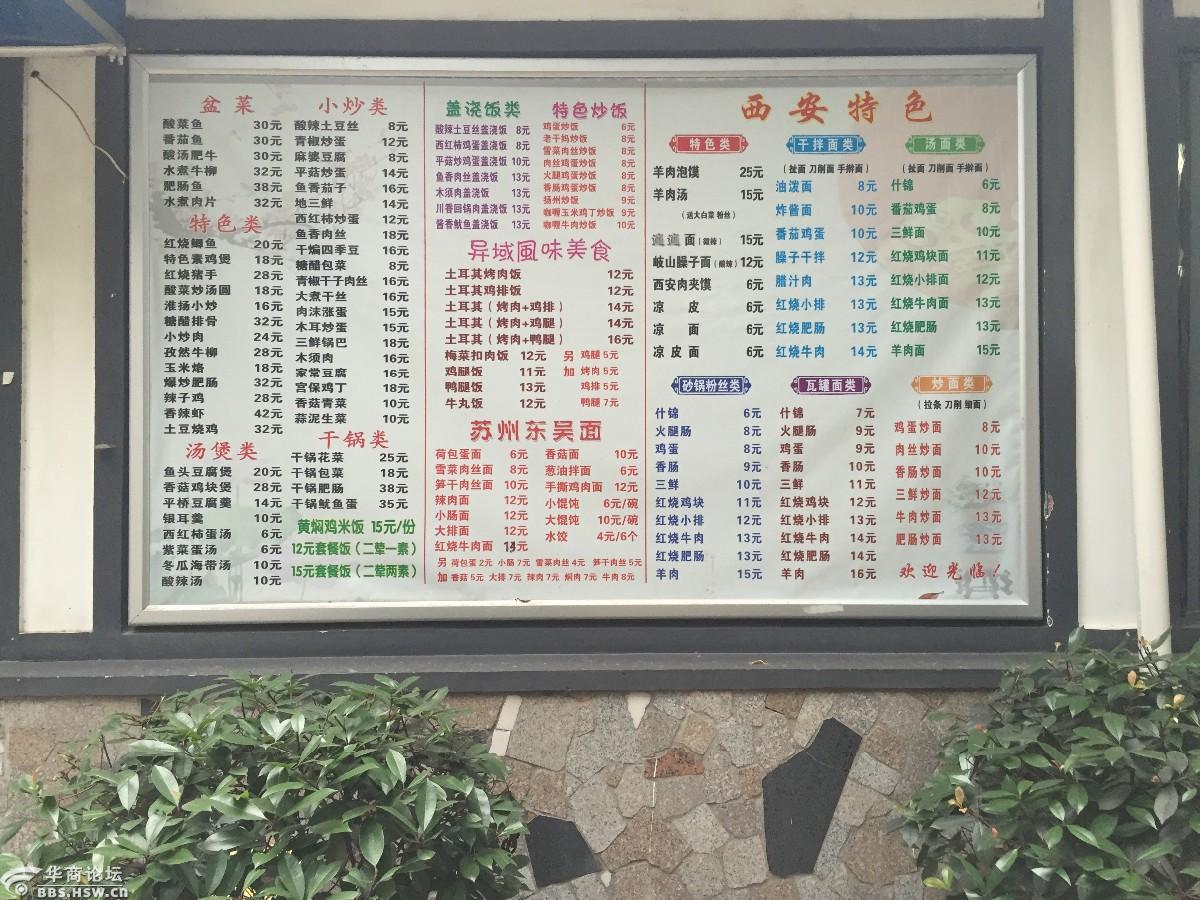 盆菜
酸菜鱼 30元
番茄鱼 30元
酸汤肥牛 30元
水煮牛柳 32元
肥肠鱼 38元
水煮肉片 32元
特色类
红烧鲫鱼 20元
特色素鸡煲 18元
红烧猪手 28元
酸菜炒汤圆 18元
淮扬小炒 16元
糖醋排骨 32元
小炒肉 24元
孜然牛柳 28元
玉米烙 18元
爆炒肥肠 32元
辣子鸡 28元
香辣虾 42元
土豆烧鸡 32元
汤煲类
鱼头豆腐煲 20元
香菇鸡块煲 28元
平桥豆腐羹 14元
银耳羹 10元
西红柿蛋汤 6元
紫菜蛋汤 6元
冬瓜海带汤 10元
酸辣汤 10元
小炒类
酸辣土豆丝 8元
青椒炒蛋 12元
麻婆豆腐 8元
平菇炒蛋 14元
鱼香茄子 16元
地三鲜 14元
西红柿炒蛋 12元
鱼香肉丝 18元
干煸四季豆 16元
糖醋包菜 8元
青椒干子肉丝 16元
大煮干丝 16元
肉沫涨蛋 15元
木耳炒蛋 15元
三鲜锅巴 18元
木须肉 16元
家常豆腐 16元
宫保鸡丁 18元
香菇青菜 10元
蒜泥生菜 10元
干锅类
干锅花菜 25元
干锅包菜 18元
干锅肥肠 38元
干锅鱿鱼蛋 35元
黄焖鸡米饭 15元/份
12元套餐饭（二荤一素）
15元套餐饭（二荤两素）
盖浇饭类
酸辣土豆丝盖浇饭 8元
西红柿鸡蛋盖浇饭 8元
平菇炒鸡蛋盖浇饭 10元
鱼香肉丝盖浇饭 13元
木须肉盖浇饭 13元
川香回锅肉盖浇饭 13元
酱香鱿鱼盖浇饭 13元
特色炒饭
鸡蛋炒饭 6元
老干妈炒饭 8元
雪菜肉丝炒饭 8元
肉丝鸡蛋炒饭 8元
火腿鸡蛋炒饭 8元
香肠鸡蛋炒饭 8元
扬州炒饭 9元
咖喱玉米鸡丁炒饭 9元
咖喱牛肉炒饭 10元
异域風味美食
土耳其烤肉饭 12元
土耳其鸡排饭 12元
土耳其（烤肉+鸡排） 14元
土耳其（烤肉+鸡腿） 14元
土耳其（烤肉+鸭腿） 16元
梅菜扣肉饭 12元
鸡腿饭 11元
鸭腿饭 13元
牛丸饭 12元
另加
鸡腿 5元
烤肉 5元
鸡排 5元
鸭腿 7元
苏州东吴面
荷包蛋面 6元
雪菜肉丝面 8元
笋干肉丝面 10元
辣肉面 12元
小肠面 12元
大排面 12元
红烧牛肉面
香菇面 10元
葱油拌面 6元
手撕鸡肉面 12元
小馄饨 6元/碗
大馄饨 10元/碗
水饺 4元/6个
另 荷包蛋 2元 小肠 7元 雪菜肉丝 4元 笋干肉丝 5元
加 香菇 5元 大排 7元 辣肉 7元 焖肉 7元 牛肉 8元
西安特色
特色类
羊肉泡馍 25元
羊肉汤 15元
（送大白菜 粉丝）
面（微辣） 15元
岐山臊子面（酸辣） 12元
西安肉夹馍 6元
凉皮 6元
凉面 6元
凉皮面 6元
干拌面类
（扯面 刀削面 手擀面）
油泼面 8元
炸酱面 10元
番茄鸡蛋 10元
臊子干拌 12元
腊汁肉 13元
红烧小排 13元
红烧肥肠 13元
红烧牛肉 14元
汤面类
（扯面 刀削面 手擀面）
什锦 6元
番茄鸡蛋 8元
三鲜面 10元
红烧鸡块面 11元
红烧小排面 12元
红烧牛肉面 13元
红烧肥肠 13元
羊肉面 15元
砂锅粉丝类
什锦 6元
火腿肠 8元
鸡蛋 8元
香肠 9元
三鲜 10元
红烧鸡块 11元
红烧小排 12元
红烧牛肉 13元
红烧肥肠 13元
羊肉 15元
瓦罐面类
什锦 7元
火腿肠 9元
鸡蛋 9元
香肠 10元
三鲜 11元
红烧鸡块 12元
红烧小排 13元
红烧牛肉 14元
红烧肥肠 14元
羊肉 16元
炒面类
（拉条 刀削 细面）
鸡蛋炒面 8元
肉丝炒面 10元
香肠炒面 10元
三鲜炒面 12元
牛肉炒面 13元
肥肠炒面 13元
欢迎光临！
华商论坛
BBS.HSW.CN